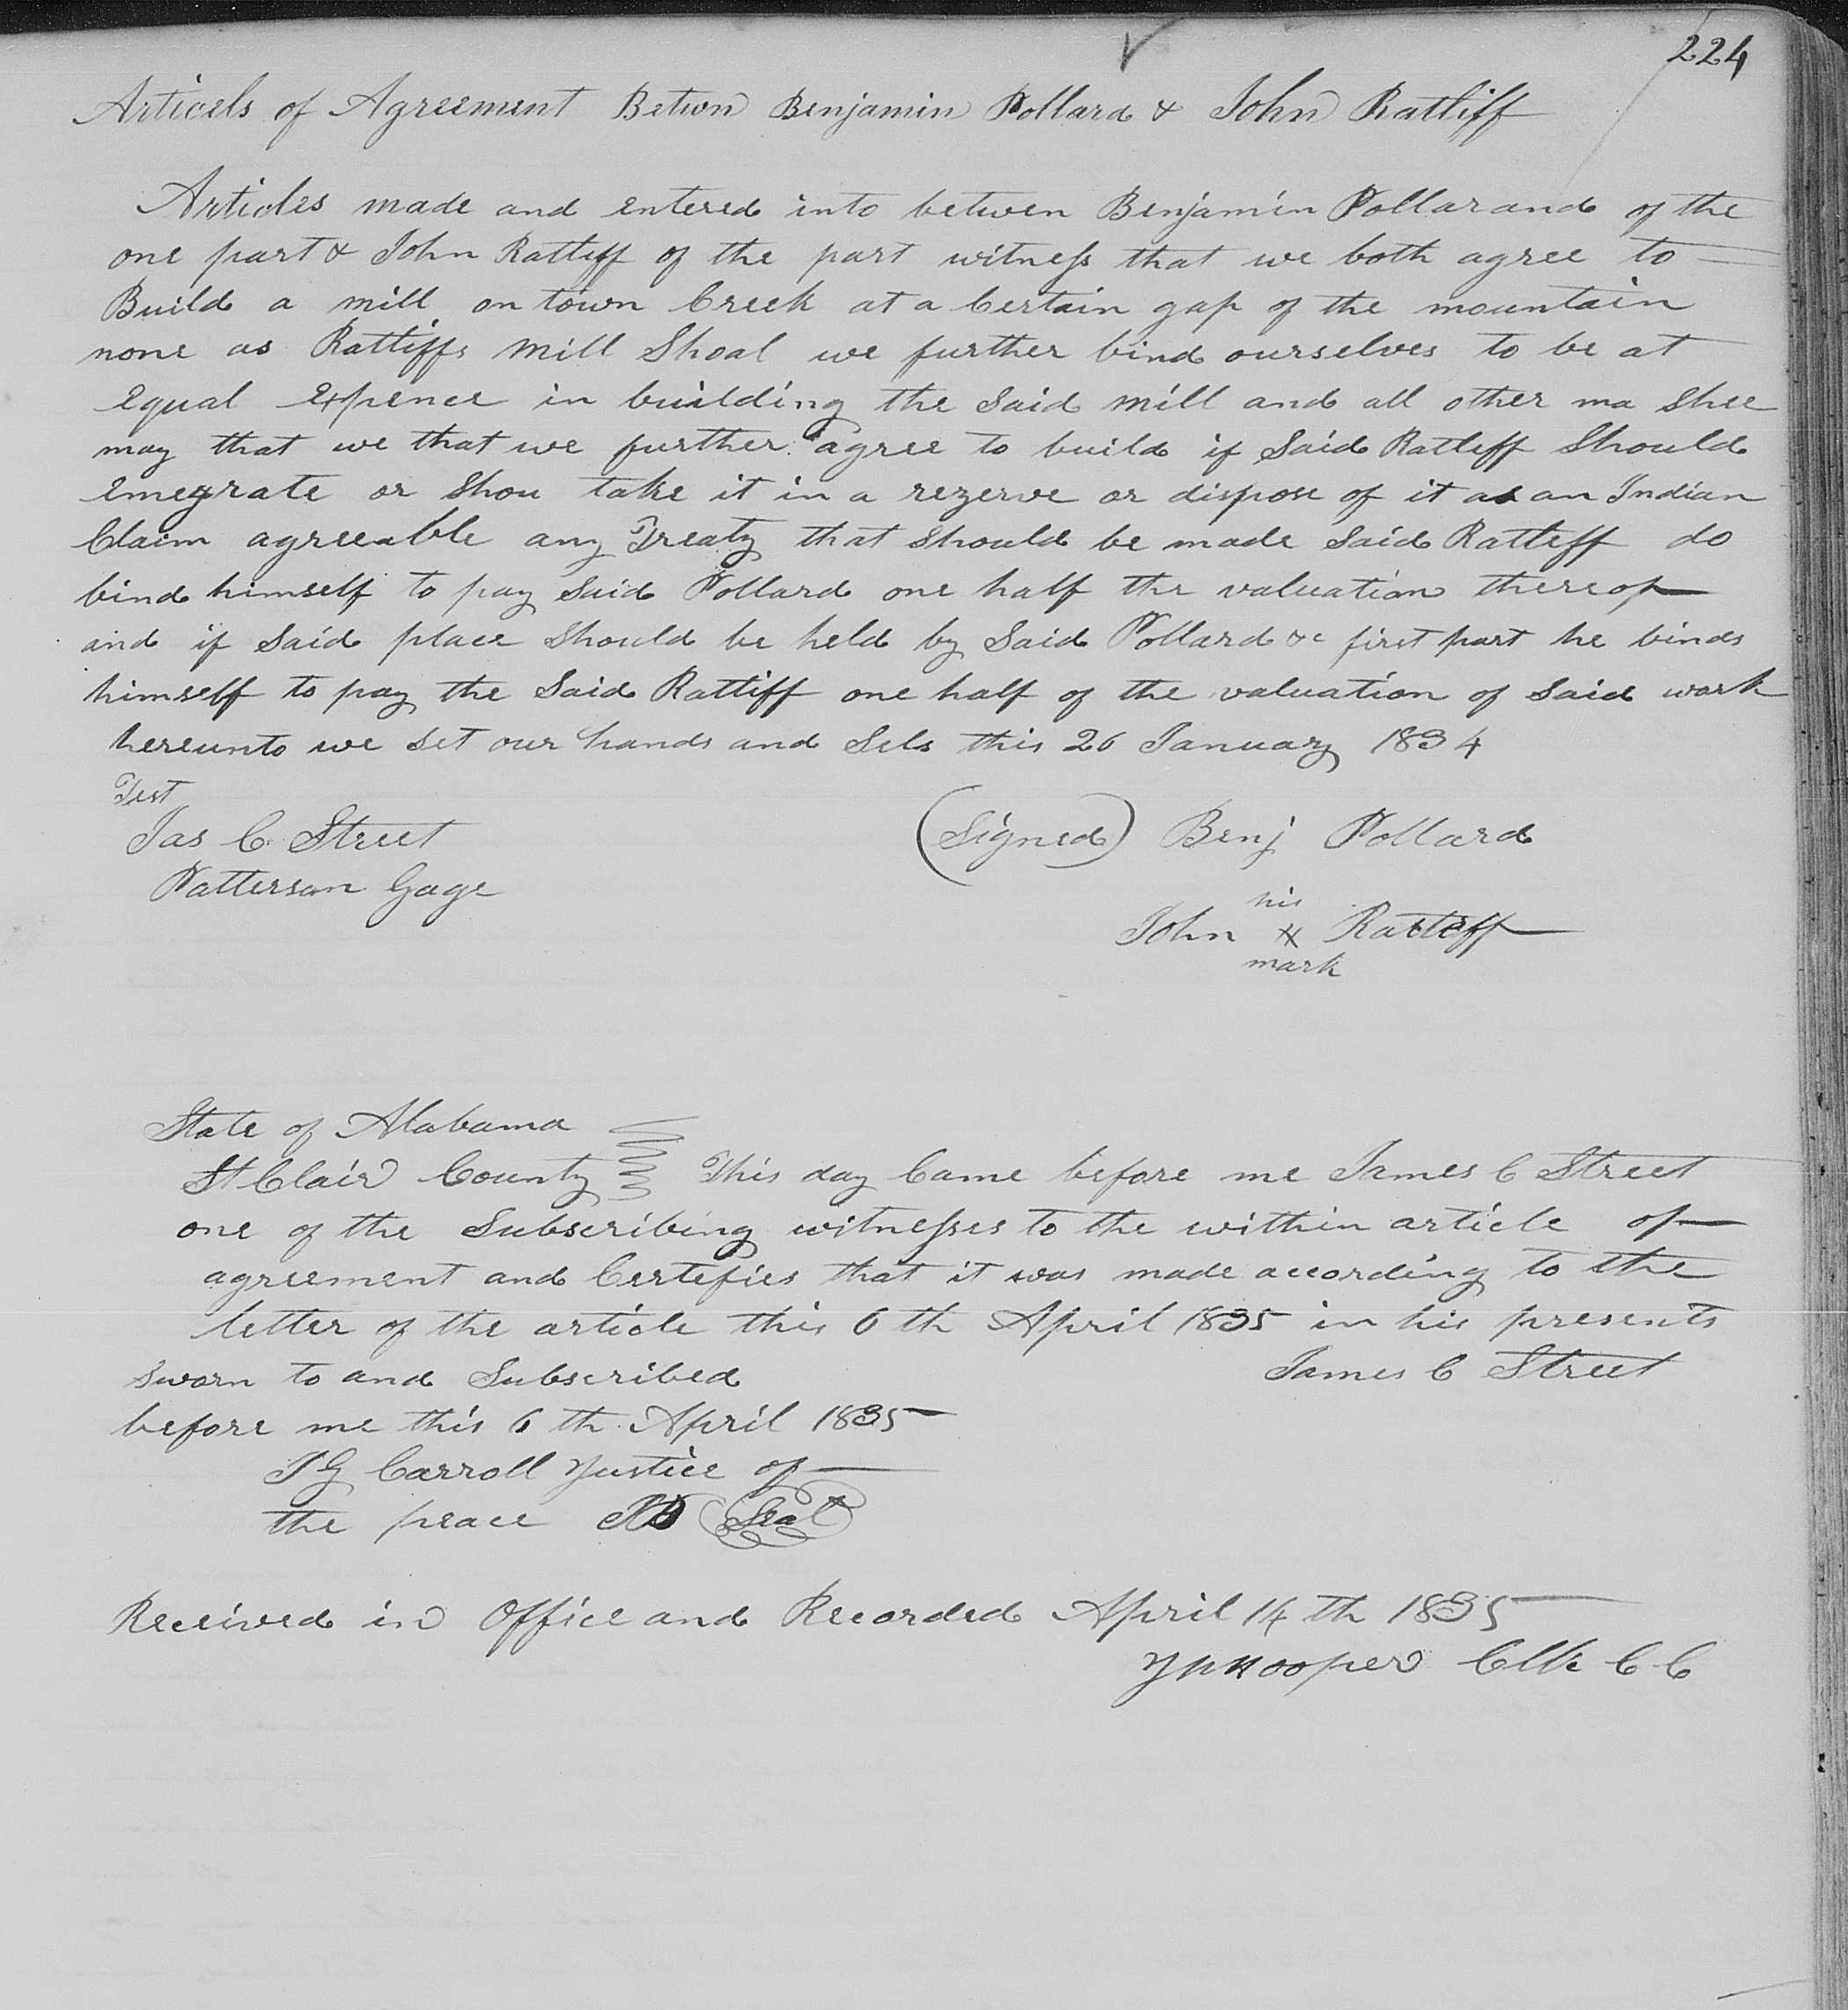 224
Articels of Agreement Betwn Benjamin Pollard & John Ratliff
Articles made and entered into betwen Benjamin Pollarand of the
one part & John Ratliff of the part witness that we both agree to
Build a mill on town Creek at a Certain gap of the mountain
none as Ratliffs Mill Shoal we further bind ourselves to be at
equal expence in building the Said mill and all other ma shee
may that we that we further agree to build if Said Ratliff Should
emegrate or Shou take it in a rezerve or dispose of it as an Indian
Claim agreeable any Treaty that should be made Said Ratliff do
bind himself to pay Said Pollard one half the valuation thereof
and if Said place Should be held by Said Pollard &c first part he binds
himself to pay the Said Ratliff one half of the valuation of Said work
hereunto we Set our hands and Sels this 26 January 1834
Test
Jas C. Street (Signed) Benj Pollard
Patterson Gage
his
John X Ratliff
mark
State of Alabama
St Clair County This day Came before me James C Street
one of the Subscribing witnesses to the within article of
agreement and Certefies that it was made according to the
letter of the article this 6 th April 1835 in his presents
Sworn to and Subscribed James C Street
before me this 6 th April 1835
T G Carroll Justice of
the peace Seal
Received in Office and Recorded April 14 th 1835
Hooper Clk C C